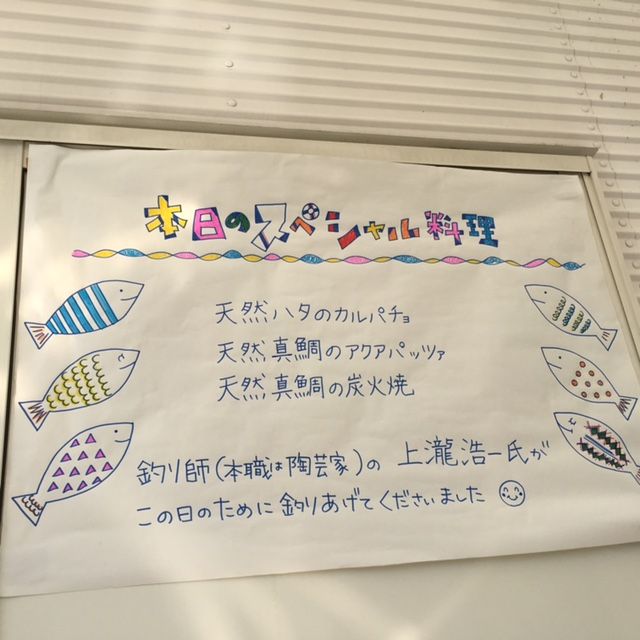 本日のスペシャル料理
天然ハタのカルパチョ
天然真鯛のアクアパッツァ
天然真鯛の炭火焼
釣り師(本職は陶芸家)の 上瀧浩一氏が
この日のために釣りあげてくださいました